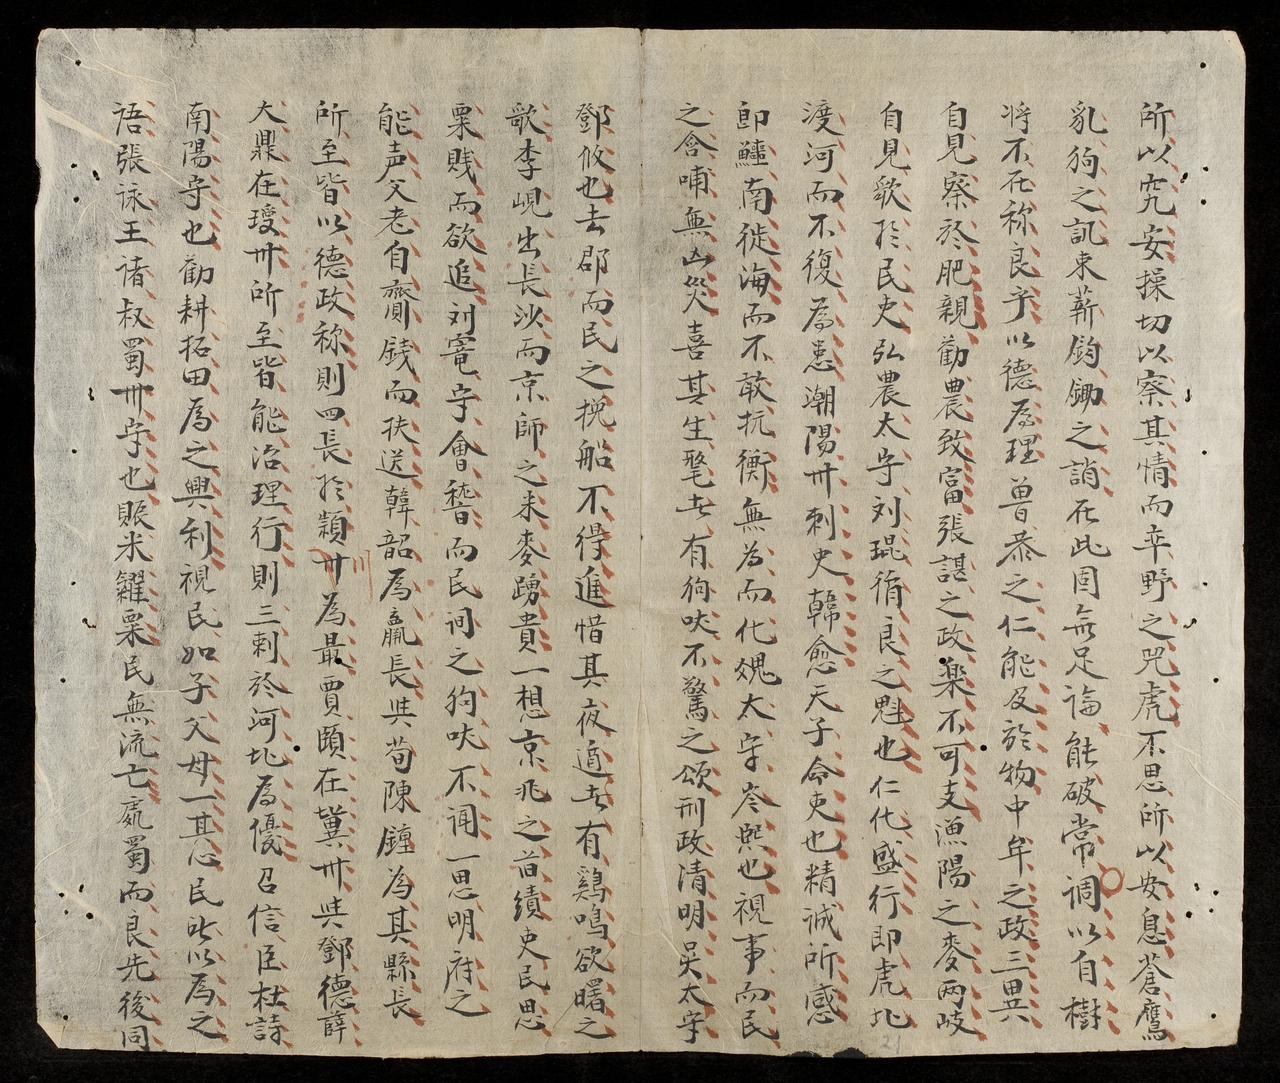 所以究安操切以察其情而幸野之咒虎不思所以安息蒼鷹
乳狗之訊束薪鈎鋤之誚在此固無足論能破常調以自樹
将不在称良守以德為理曾恭之仁能及於物中牟之政三異
自見察於肥親勸農致富張諶之政楽不可支漁陽之麥兩岐
自見歌於民吏弘農太守刘琨循良之魁也仁化盛行即虎北
渡河而不復為患潮陽卅刺史韓愈天子命吏也精诚所感
即鱷南徙海而不敢抗衡無為而化魏太守岑熙也視事而民
之含哺無凶災喜其生髦者有狗吠不驚之頌刑政清明吳太守
鄧攸也去郡而民之挽船不得進惜其夜遁者有鷄鳴欲曙之
歌李峴出長沙而京師之米麥踴貴一想京兆之苗績吏民思
粟賎而欲追刘寵守會嵇而民间之狗吠不闻一思明府之
能声父老自齎錢而扶送韓韶為贏長與荀陳鐘為其縣長
所至皆以德政称則四長於潁卅為最賈頤在冀卅與鄧德薛
大鼎在瑷卅所至皆能治理行則三刺於河北為優召信臣杜詩
南陽守也勸耕拓田為之興利視民如子父母一其心民所以為之
语張詠王诸叔蜀卅守也賑米糴粟民無流亡處蜀而良先後同
21